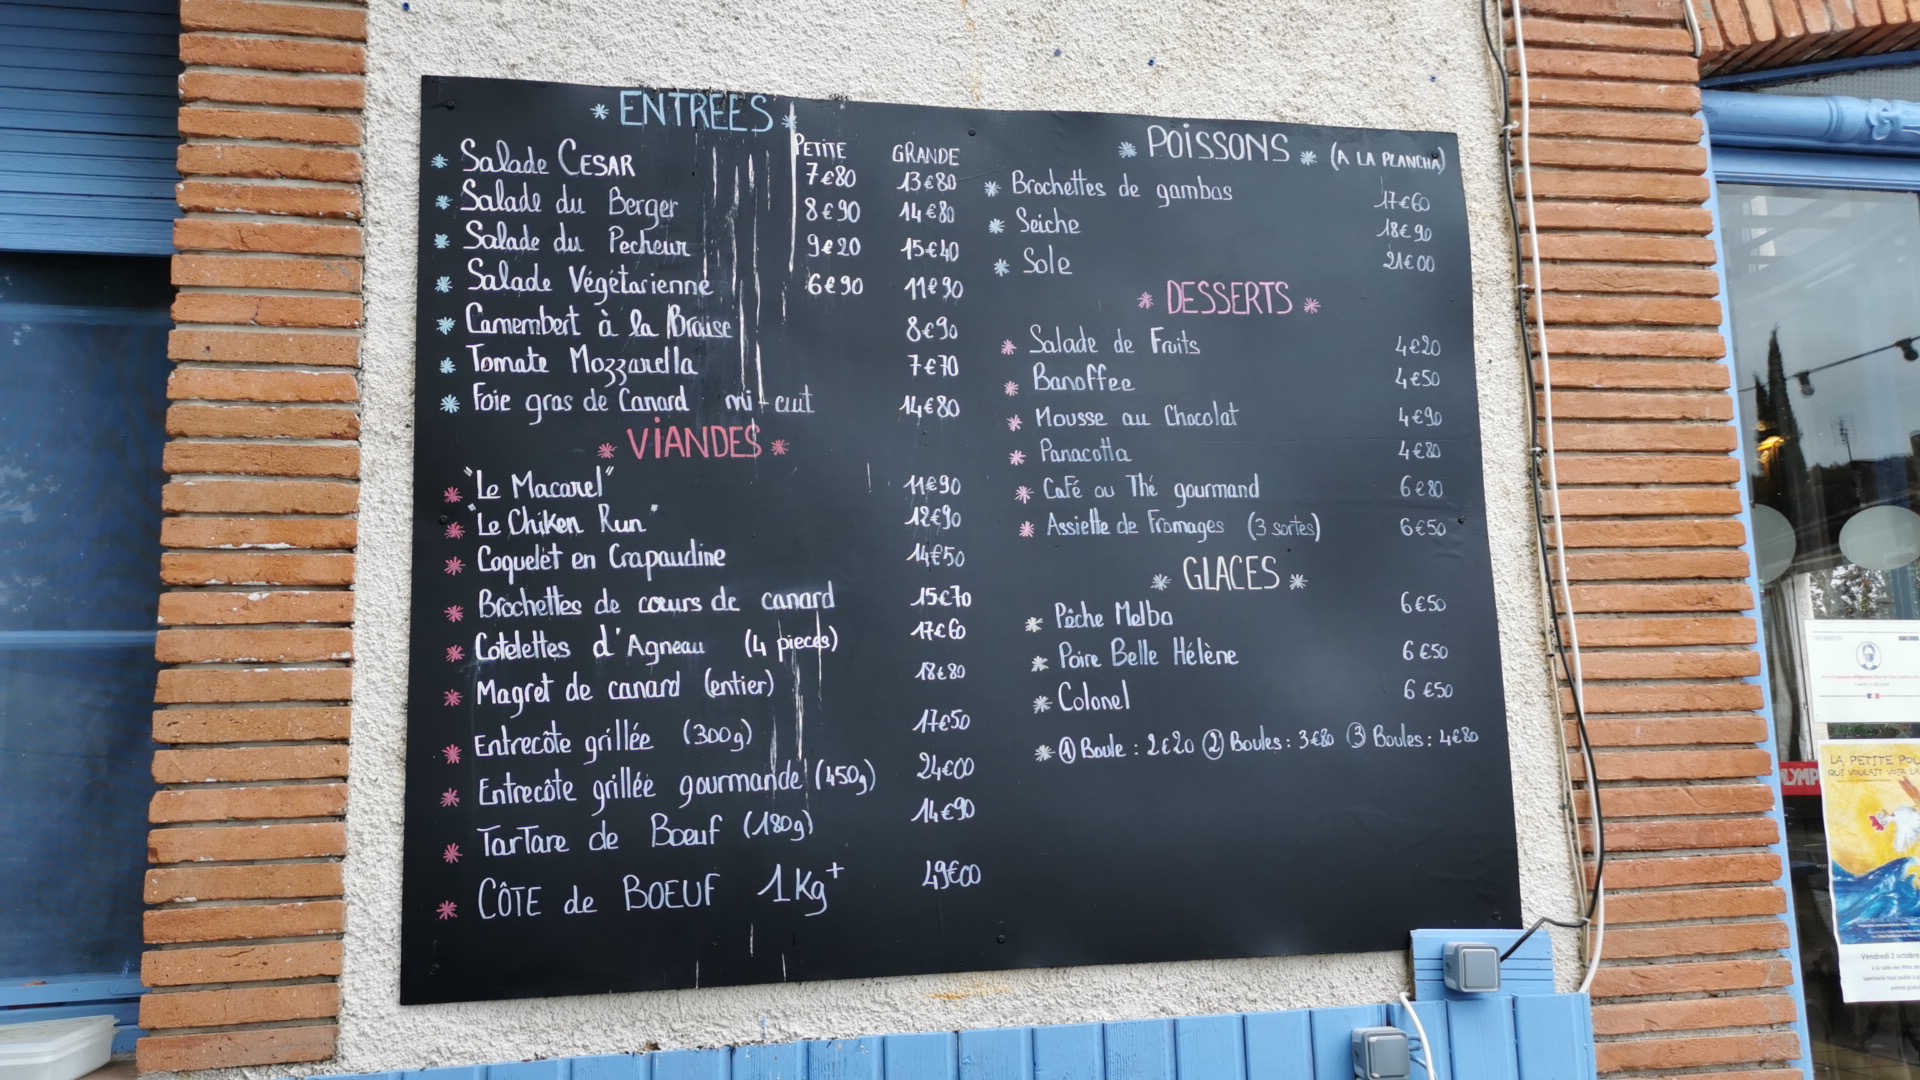 * ENTREES *
PETITE GRANDE
* Salade CESAR 7€80 13€80
* Salade du Berger 8€90 14€80
* Salade du Pecheur 9€20 15€40
* Salade Végétarienne 6€90 11€90
* Camembert à la Braise 8€90
* Tomate Mozzarella 7€70
* Foie gras de Canard mi-cuit 14€80
* ViANDES *
* "Le Macarel" 11€90
* "Le Chiken Run" 12€90
* Coquelet en Crapaudine 14€50
* Brochettes de cœurs de canard 15€70
* Cotelettes d'Agneau (4 pieces) 17€60
* Magret de canard (entier) 18€80
* Entrecôte grillée (300g) 17€50
* Entrecôte grillée gourmande (450g) 24€00
* TarTare de Bœuf (180g) 14€90
* CÔTE de BOEUF 1Kg+ 49€00
* POiSSONS * (A LA PLANCHA)
* Brochettes de gambas 17€60
* Seiche 18€90
* Sole 21€00
* DESSERTS *
* Salade de Fruits 4€20
* Banoffee 4€50
* Mousse au Chocolat 4€90
* Panacotta 4€80
* CaFé ou Thé gourmand 6€80
* Assiette de Fromages (3 sortes) 6€50
* GLACES *
* Pêche Melba 6€50
* Poire Belle Hélène 6€50
* Colonel 6€50
* ① Boule : 2€20 ② Boules : 3€80 ③ Boules : 4€80
LA PETITE POU
QUI VOULAIT VOIR LA
Vendredi 2 octobre